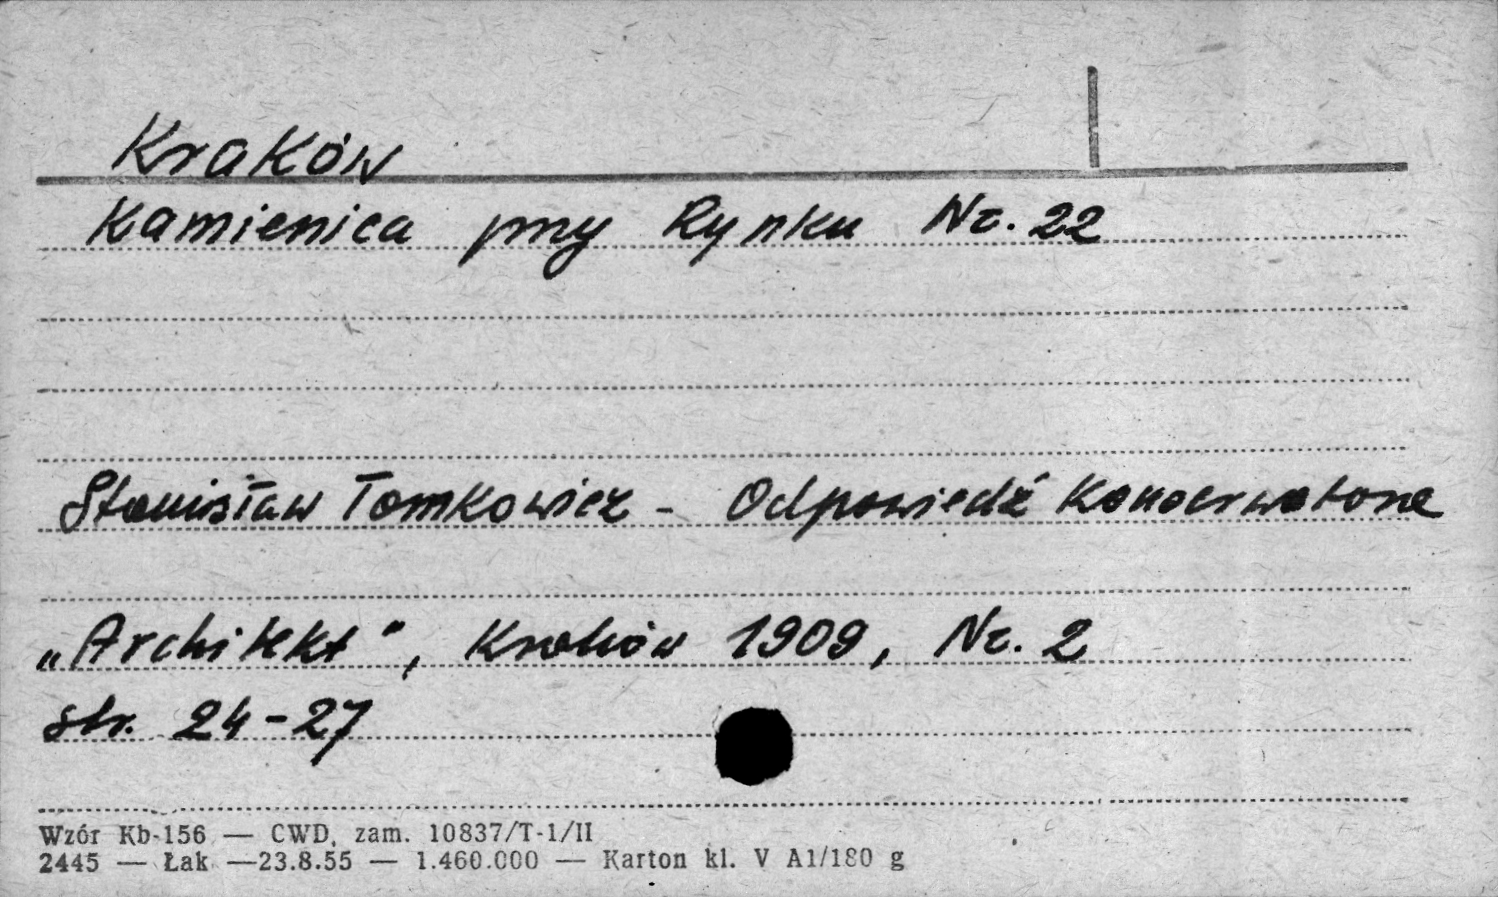 Kraków
Kamienica przy Rynku Nr. 22
Stanisław Tomkowicz - Odpowiedź Konserwatora
„Architekt", Kraków 1909, Nr. 2
str. 24-27
Wzór Kb-156 — CWD, zam. 10837/T-1/II
2445 — Łak —23.8.55 — 1.460.000 — Karton kl. V A1/180 g